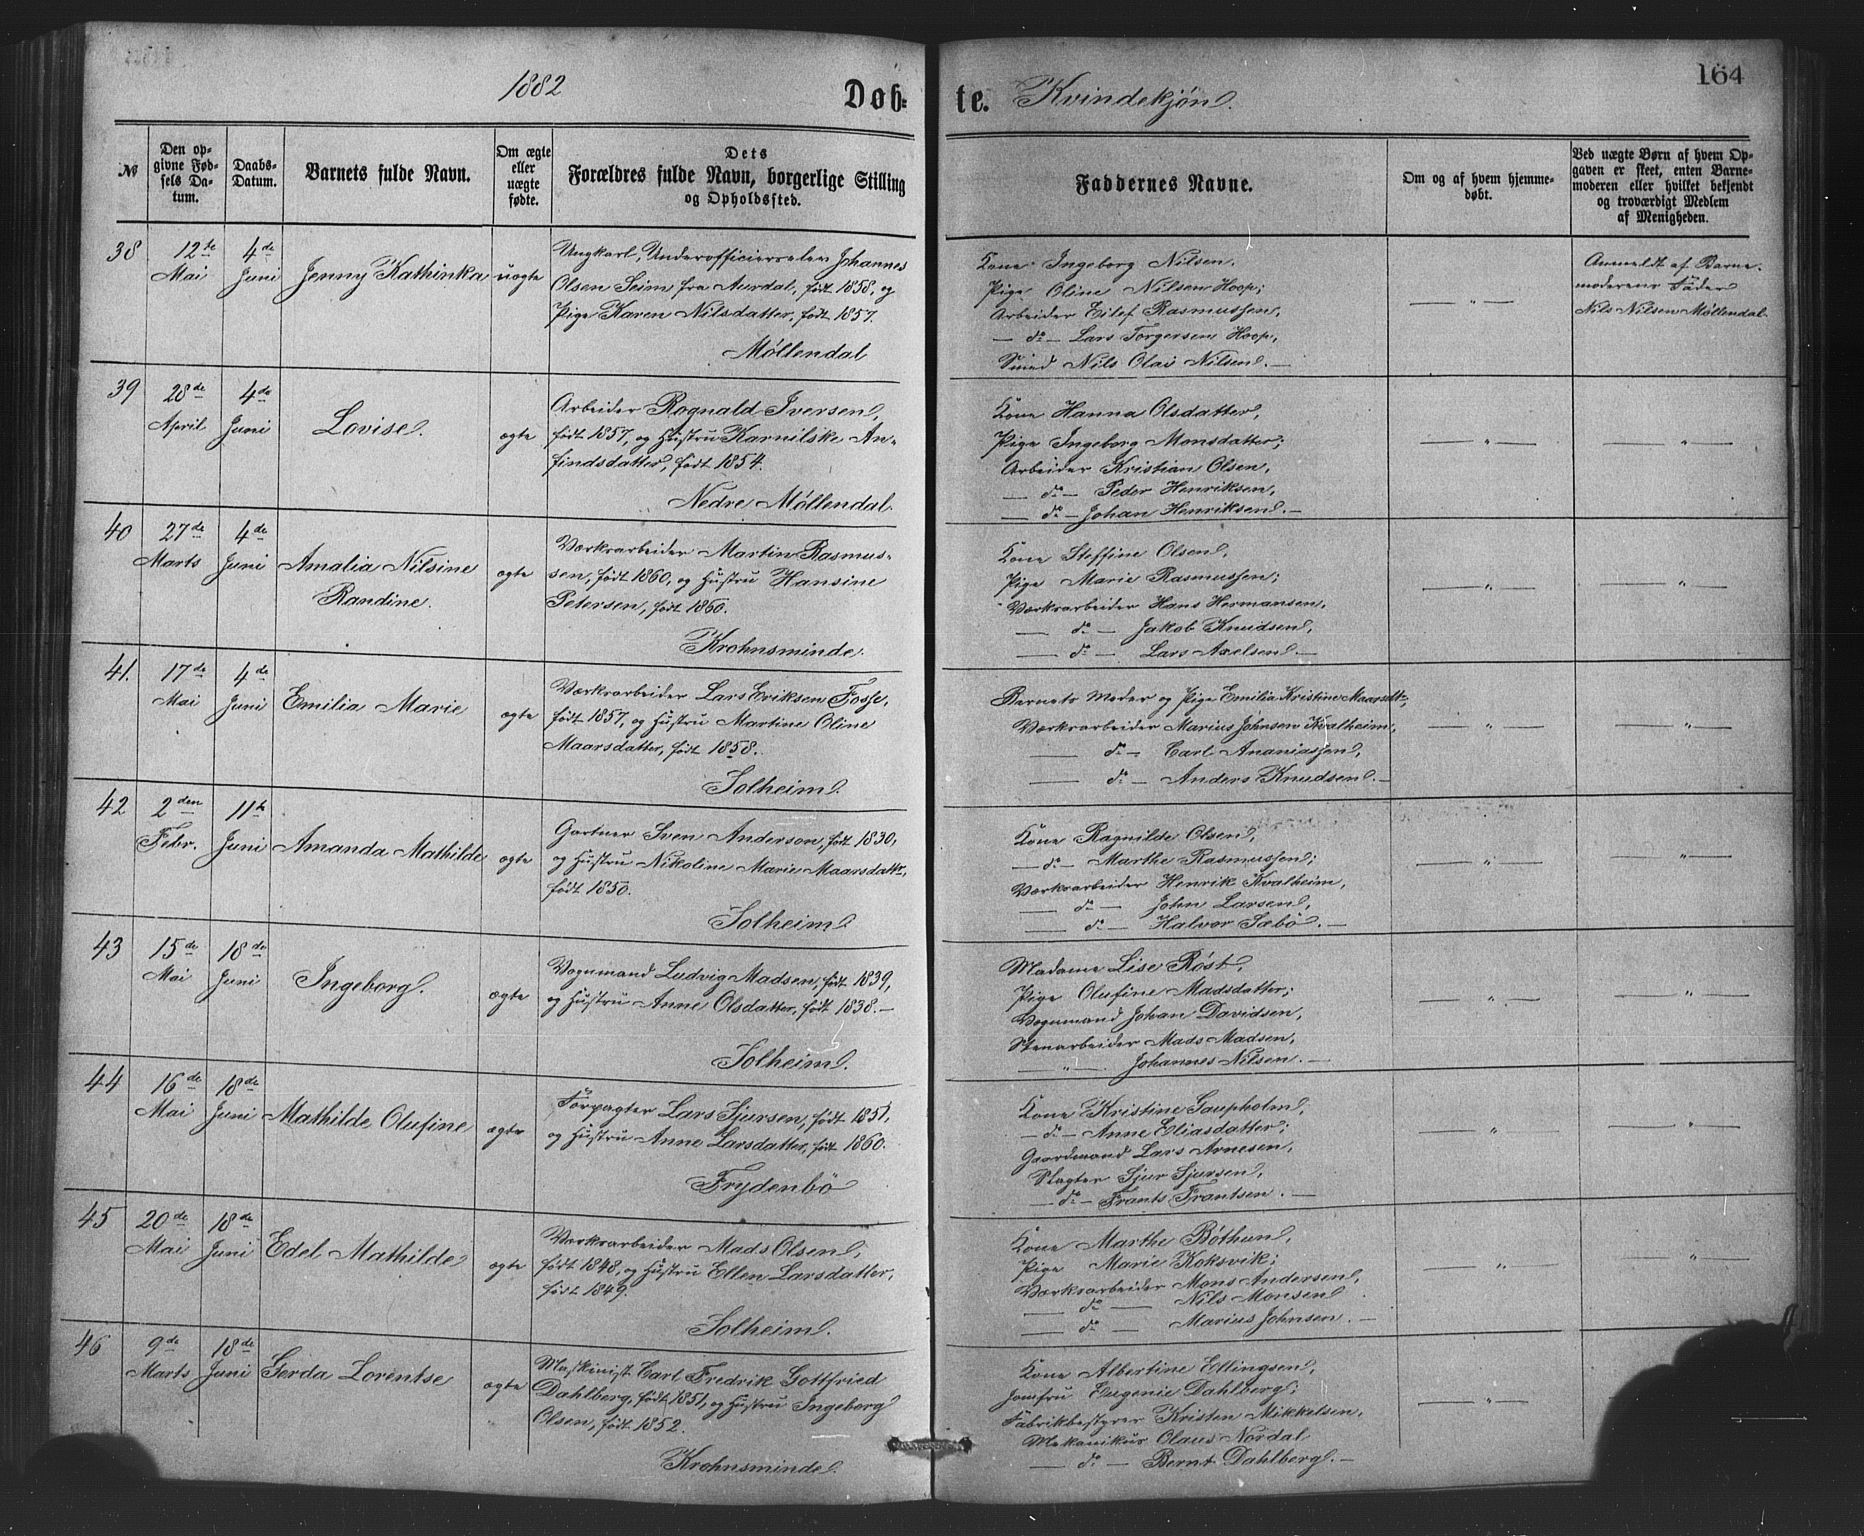 1882
Døb-
te. Kvindekjøn.
164
№
Den op-
givne Fød-
sels Da-
tum.
Daabs-
Datum.
Barnets fulde Navn.
Om ægte
eller
uægte
fødte.
Dets
Forældres fulde Navn, borgerlige Stilling
og Opholdssted.
Faddernes Navne.
Om og af hvem hjemme-
døbt.
Ved uægte Børn af hvem Op-
gaven er skeet, enten Barne-
moderen eller hvilket bekjendt
og troværdigt Medlem
af Menigheden.
38
12te
Mai
4de
Juni
Jenny Kathinka
uægte
Ungkarl, Underofficierselev Johannes
Olsen Seim fra Aurdal, født 1858, og
Pige Karen Nilsdatter, født 1857.
Møllendal
Kone Ingeborg Nilsen,
Pige Oline Nilsen Hoop;
Arbeider Eilef Rasmussen,
— do — Lars Torgersen Hoop,
Smed Nils Olai Nilsen. —
— " —
Anmeldt af Barne-
moderens Fader
Nils Nilsen Møllendal
39
28de
April
4de
Juni
Lovise.
ægte
Arbeider Rognald Iversen,
født 1857, og Hustru Karnilske An-
findsdatter, født 1854.
Nedre Møllendal.
Kone Hanna Olsdatter,
Pige Ingeborg Monsdatter;
Arbeider Kristian Olsen,
— do — Peder Henriksen,
— do — Johan Henriksen. —
— " —
— " —
40
27de
Marts
4de
Juni
Amalia Nilsine
Randine.
ægte
Værksarbeider Martin Rasmus-
sen, født 1860, og Hustru Hansine
Petersen, født 1860.
Krohnsminde.
Kone Steffine Olsen,
Pige Marie Rasmussen;
Værksarbeider Hans Hermansen,
— do — Jakob Knudsen,
— do — Lars Axelsen. —
— " —
— " —
41.
17de
Mai
4de
Juni
Emilia Marie
ægte
Værksarbeider Lars Eriksen Fosse,
født 1857, og Hustru Martine Oline
Maarsdatter, født 1858.
Solheim.
Barnets Moder og Pige Emilia Kristine Maarsdtr,
Værksarbeider Marius Johnsen Kvalheim,
— do — Carl Ananiassen,
— do — Anders Knudsen. —
— " —
— " —
42
2den
Febr.
11te
Juni
Amanda Mathilde
ægte
Gartner Sven Anderson, født 1830,
og Hustru Nikoline Marie Maarsdattr,
født 1850.
Solheim.
Kone Ragnilde Olsen,
— do — Marthe Rasmussen;
Værksarbeider Henrik Kvalheim,
— do — John Larsen,
— do — Halvor Sæbö. —
— " —
— " —
43
15de
Mai
18de
Juni
Ingeborg.
ægte
Vognmand Ludvig Madsen, født 1839,
og Hustru Anne Olsdatter, født 1838. —
Solheim.
Madame Lise Röst,
Pige Olufine Madsdatter;
Vognmand Johan Davidsen,
Stenarbeider Mads Madsen,
— " — Johannes Nilsen. —
— " —
— " —
44
16de
Mai
18de
Juni
Mathilde Olufine
ægte
Forpagter Lars Sjursen, født 1851,
og Hustru Anne Larsdatter, født 1860.
Frydenbö
Kone Kristine Gaupholm,
— do — Anne Eliasdatter;
Gaardmand Lars Arnesen,
Slagter Sjur Sjursen,
— do — Frants Frantsen. —
— " —
— " —
45
20de
Mai
18de
Juni
Edel Mathilde
ægte
Værksarbeider Mads Olsen,
født 1848, og Hustru Ellen Larsdatter,
født 1849.
Solheim.
Kone Marthe Böthun,
Pige Marie Koksvik;
Værksarbeider Mons Andersen,
— do — Nils Monsen
— do — Marius Johnsen. —
— " —
— " —
46
9de
Marts
18de
Juni
Gerda Lorentse
ægte
Maskinist Carl Fredrik Gottfried
Dahlberg, født 1851, og Hustru Ingeborg
Olsen, født 1852.
Krohnsminde.
Kone Albertine Ellingsen,
Jomfru Eugenie Dahlberg;
Fabrikbestyrer Kristen Mikkelsen,
Mekanikus Olaus Nordal
— do — Bernt Dahlberg. —
— " —